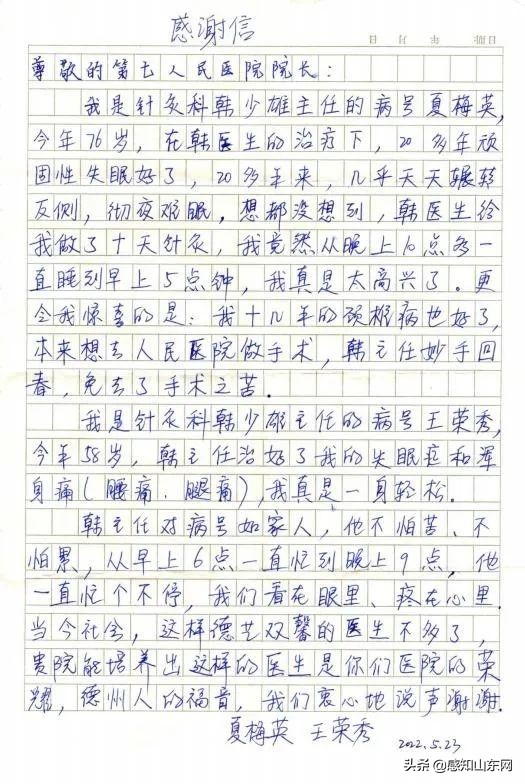 感谢信
尊敬的第七人民医院院长：
我是针灸科韩少雄主任的病号夏梅英,
今年76岁，在韩医生的治疗下，20多年顽
固性失眠好了，20多年来，几乎天天辗转
反侧，彻夜难眠，想都没想到，韩医生给
我做了十天针灸，我竟然从晚上10点多一
直睡到早上5点钟，我真是太高兴了。更
令我惊喜的是：我十几年的颈椎病也好了，
本来想去人民医院做手术，韩主任妙手回
春，免去了手术之苦．
我是针灸科韩少雄主任的病号王荣秀，
今年58岁，韩主任治好了我的失眠症和浑
身痛(腰痛．腿痛)，我真是一身轻松．
韩主任对病号如家人，他不怕苦、不
怕累，从早上6点一直忙到晚上9点，他
一直忙个不停，我们看在眼里、疼在心里．
当今社会，这样德艺双馨的医生不多了，
贵院能培养出这样的医生是你们医院的荣
耀，德州人的福音，我们衷心地说声谢谢．
夏梅英 王荣秀 2022.5.23
头条 @感知山东网